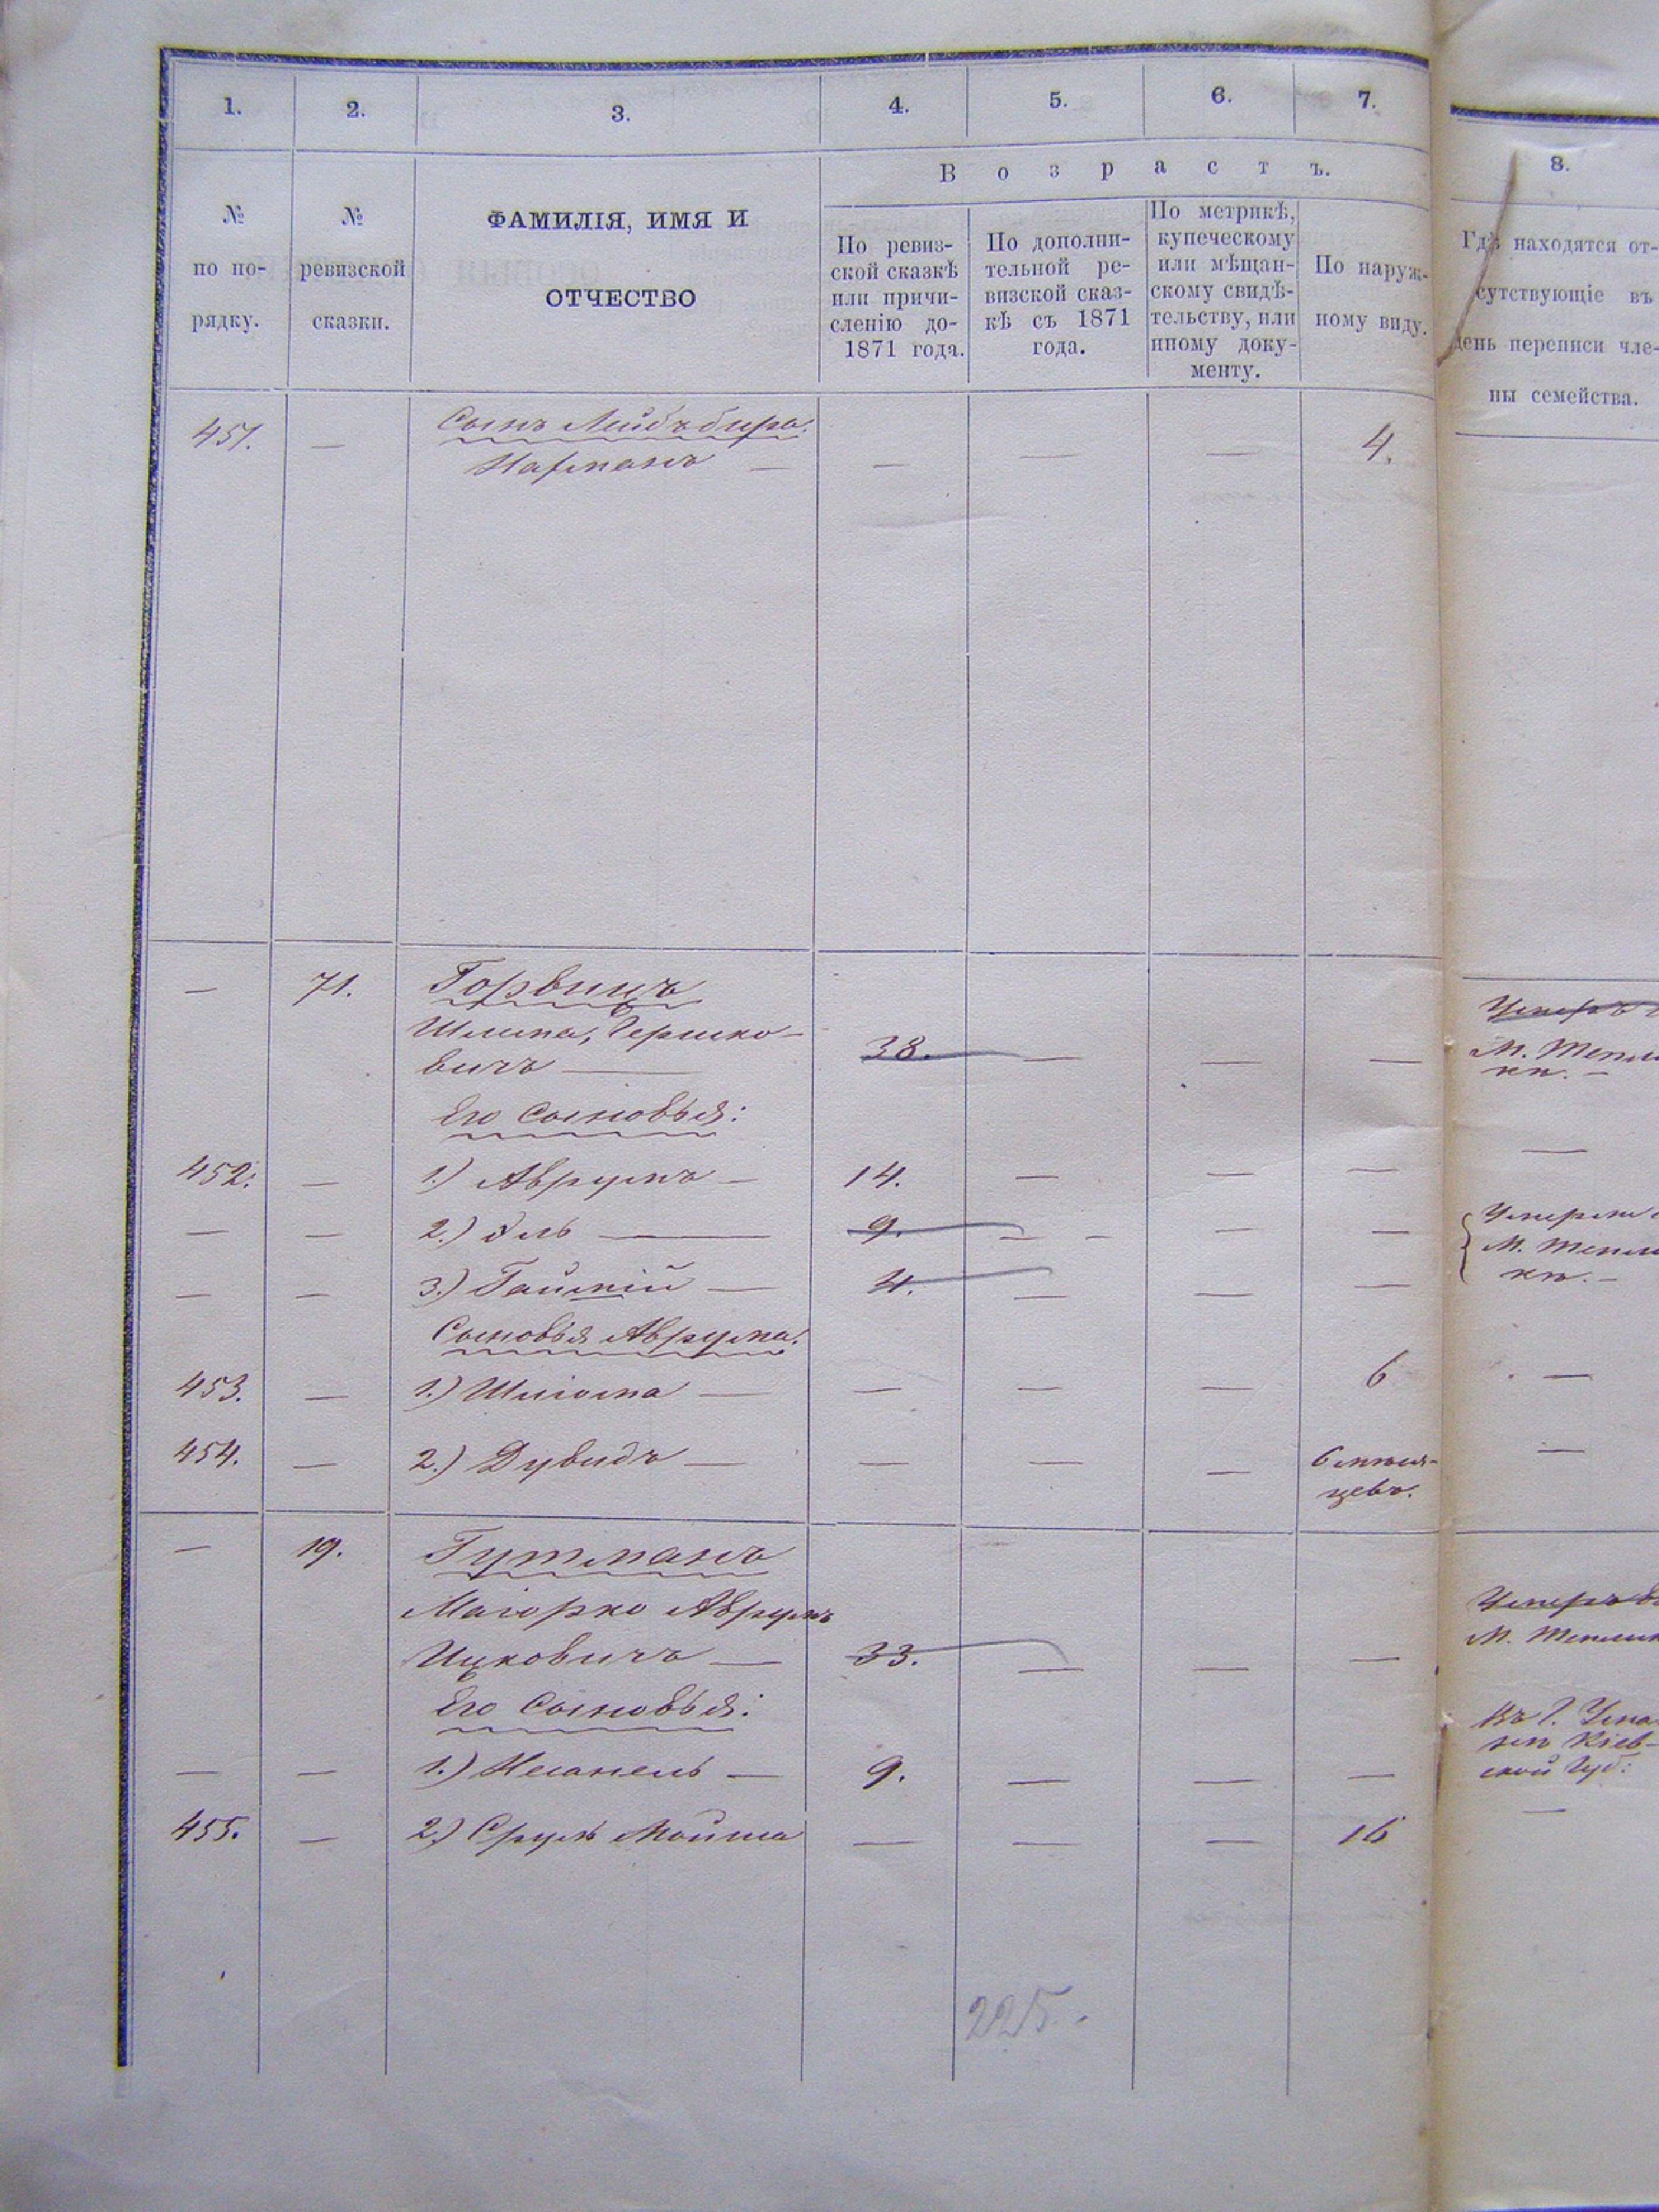 1. 2. 3. 4. 5. 6. 7. 8.
Возрастъ.
№ по порядку.
№ ревизской сказки.
ФАМИЛІЯ, ИМЯ И
ОТЧЕСТВО
По ревиз-
ской сказкѣ
или причи-
сленію до-
1871 года.
По дополни-
тельной ре-
визской сказ-
кѣ съ 1871
года.
По метрикѣ,
купеческому
или мѣщан-
скому свидѣ-
тельству, или
иному доку-
менту.
По наруж-
ному виду.
Гдѣ находятся от-
сутствующіе въ
день переписи чле-
ны семейства.
Сынъ Лейбъ
451. — Нахманъ — — — — 4.
— 71. Горвицъ
Шлема, Гершко- Умеръ
вичъ — 38. — — — М. Тепли
кѣ. —
Его Сыновья:
452. — 1.) Аврумъ — 14. — — — —
— — 2.) Эль — 9. — — — Умерли
М. Тепли
— — 3.) — 4. — — — кѣ. —
Сыновья Аврума:
453. — 1.) — — — — 6 —
454. — 2.) Дувидъ — — — — 6 мѣся- —
цевъ.
— 19. Гутманъ
Маіорко Аврумъ Умеръ
Ицковичъ — 33. — — — М. Теплик
Его Сыновья: Въ г. Ума
нѣ Кіев-
— — 1.) — 9. — — — ской Губ:
455. — 2.) Сруль Мойша — — — 16 —
225.